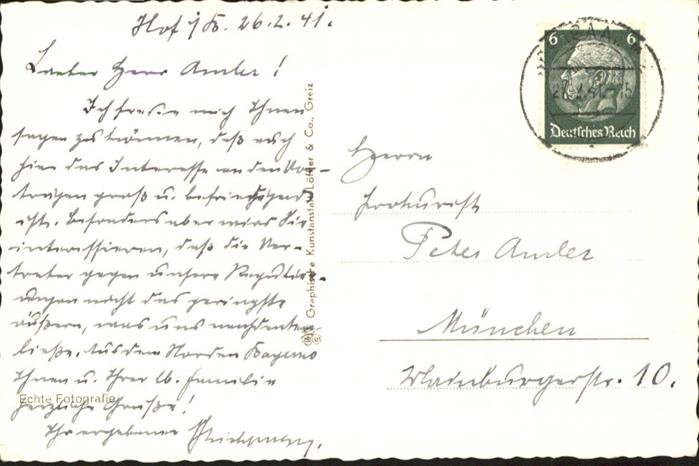 Hof i/B. 26.2.41.
Lieber Herr Amler!
Ich freue mich Ihnen
sagen zu können, daß auch
hier das Interesse an den Vor-
trägen groß u. befriedigend
ist. Besonders aber wird Sie
interessieren, daß die Ver-
treter gegen unsere Regulier-
ungen nicht das geringste
äußern, was uns nachdenken
ließe. Aus dem Norden Bayerns
Ihnen u. Ihrer lb. Familie
herzliche Grüße!
Ihr ergebener
Echte Fotografie
Graphische Kunstanstalt Löffler & Co., Greiz
6 6
Deutsches Reich
Herrn
Prokurist
Peter Amler
München
Mainburgerstr. 10.